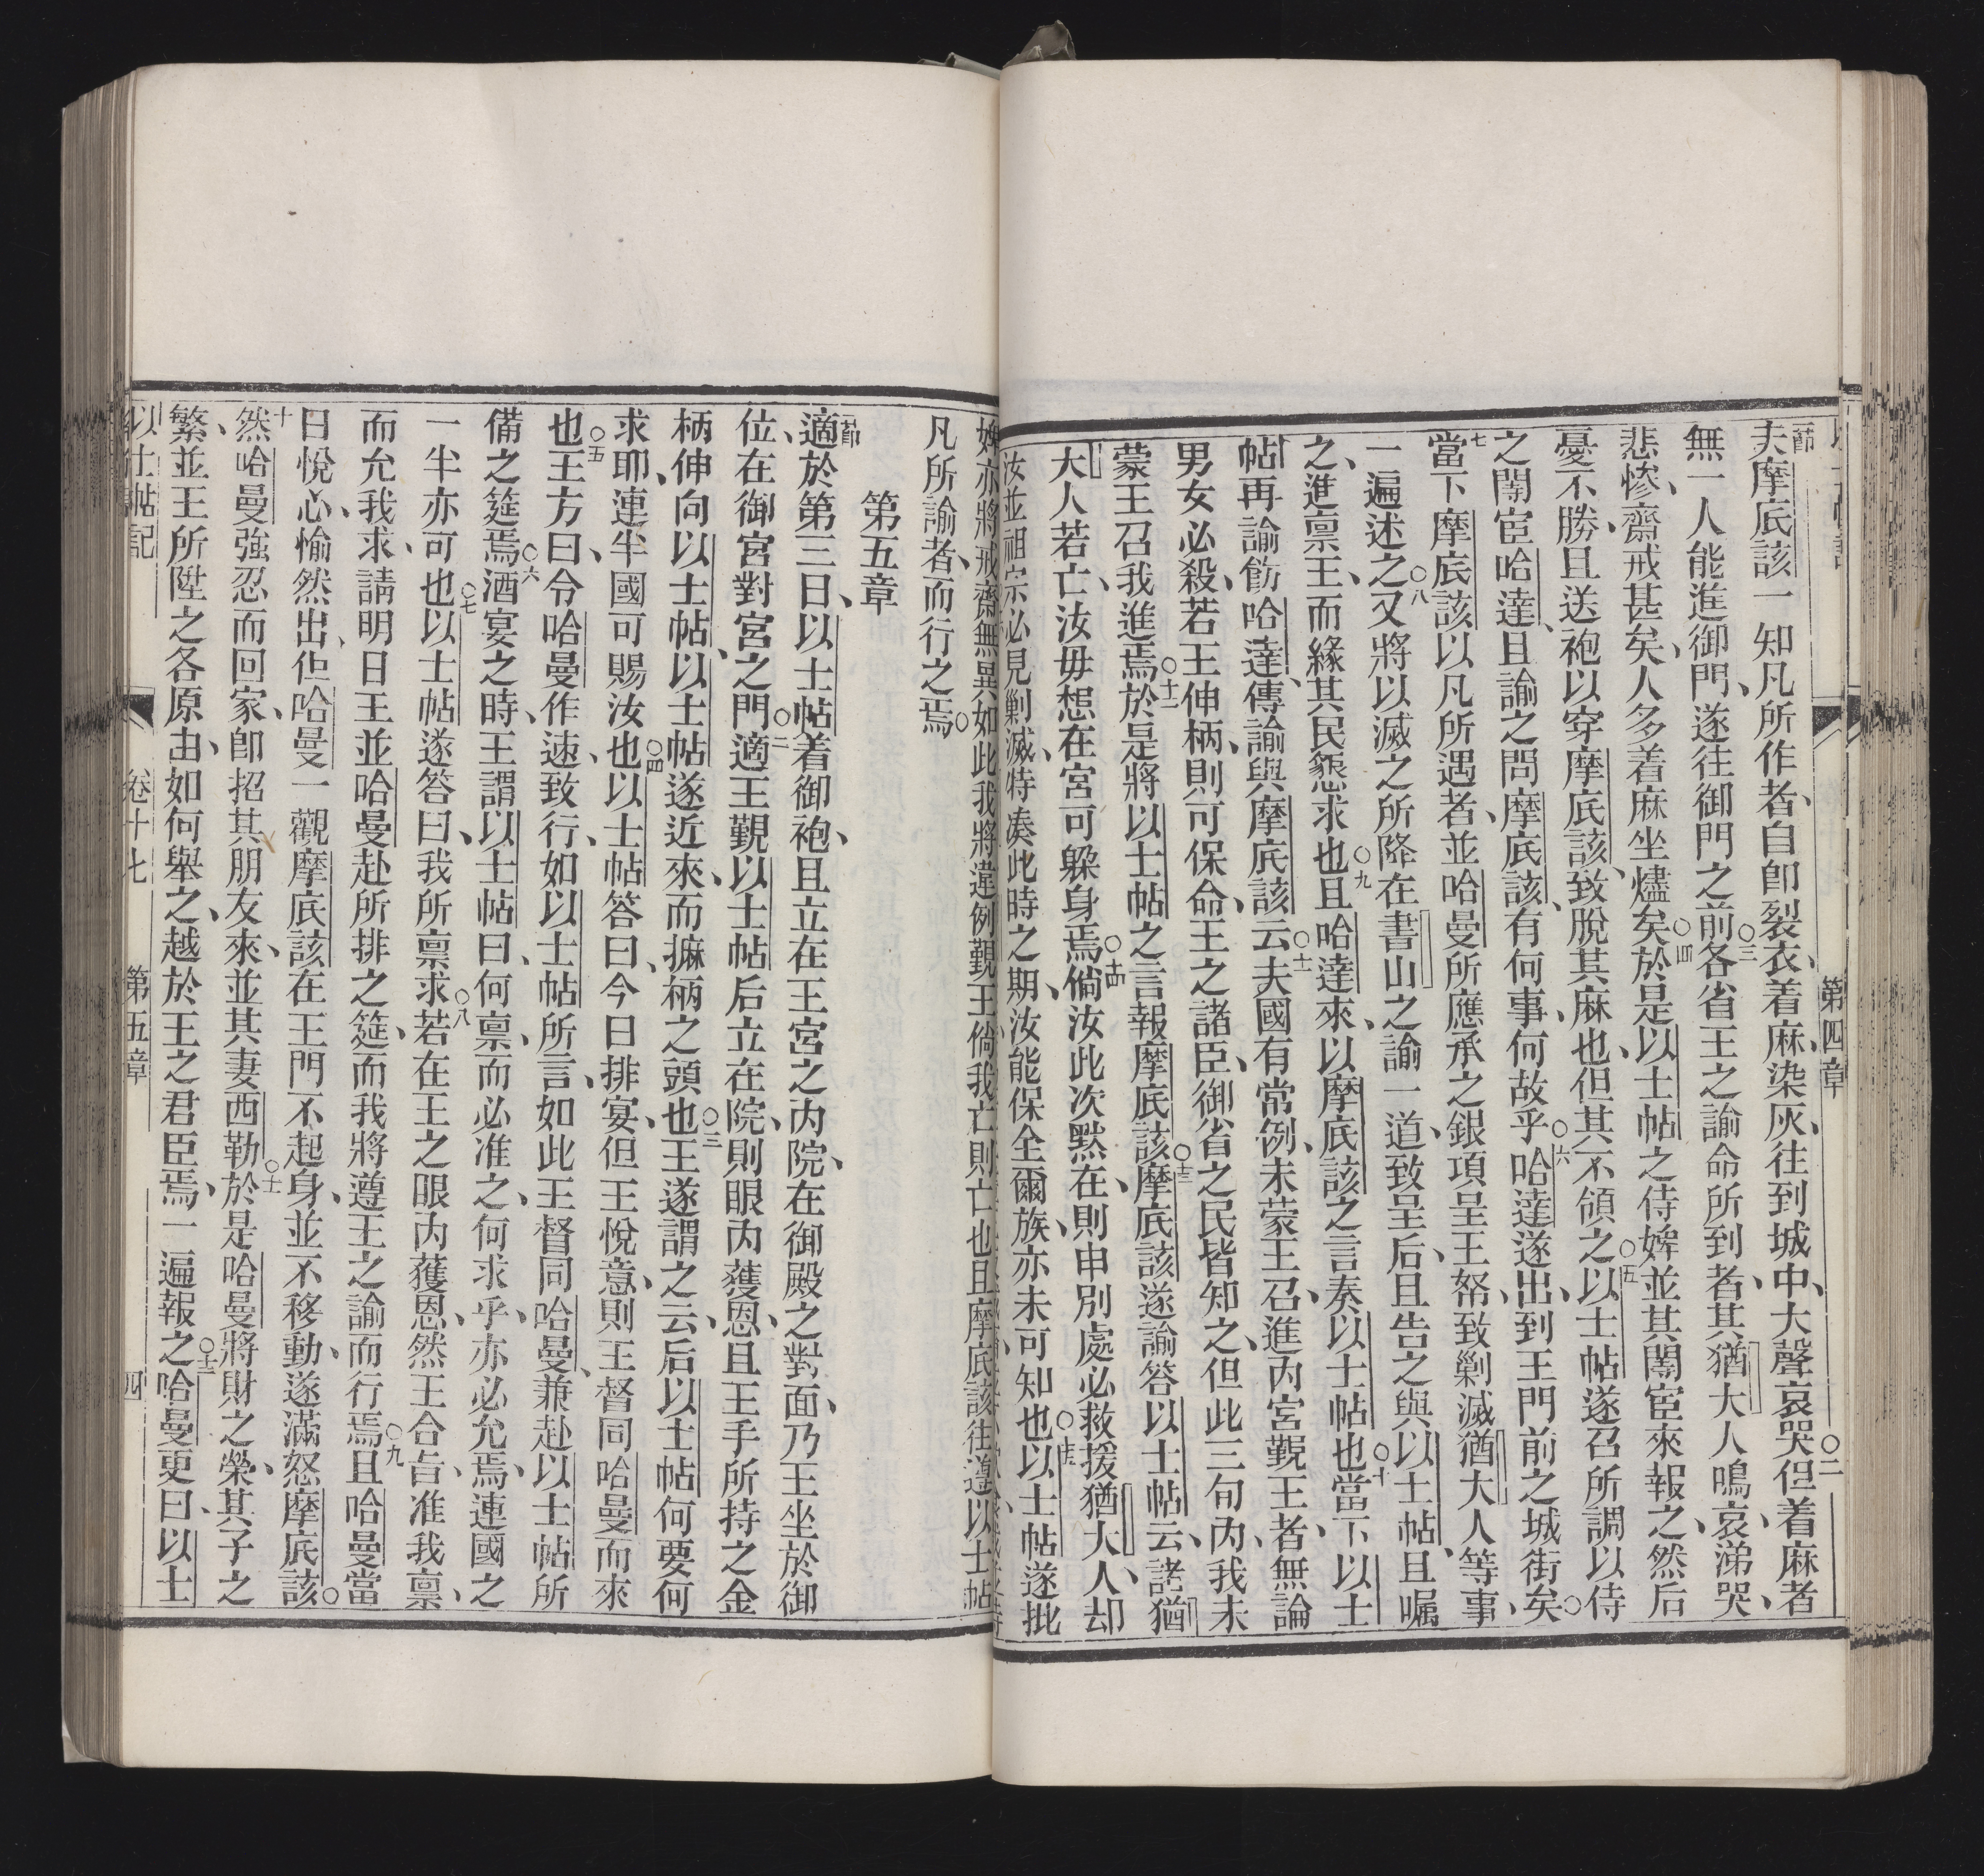 第四章
夫摩底該一知凡所作者、自卽裂衣、着麻染灰、往到城中、大聲哀哭○二但着麻者
無一人能進御門、遂往御門之前○三各省王之諭命所到者、其猶大人鳴哀、涕哭、
悲慘、齋戒甚矣、人多着麻坐燼矣○四於是以士帖之侍婢並其閹宦來報之、然后
憂不勝、且送袍以穿摩底該、致脫其麻也、但其不領之○五以士帖遂召所調以侍
之閹宦哈達、且諭之問摩底該、有何事、何故乎○六哈達遂出、到王門前之城街矣○
七當下摩底該以凡所遇者、並哈曼所應承之銀項呈王帑、致剿滅猶大人等事、
一遍述之○八又將以滅之所降在書山之諭一道、致呈后、且告之與以士帖、且囑
之、進禀王、而緣其民懇求也○九且哈達來、以摩底該之言奏以士帖也○十當下以士
帖再諭飭哈達、傳諭與摩底該云○十一夫國有常例、未蒙王召、進內宮覲王者、無論
男女必殺、若王伸柄、則可保命、王之諸臣、御省之民皆知之、但此三旬內、我未
蒙王召我進焉○十二於是將以士帖之言報摩底該○十三摩底該遂諭答以士帖云、諸猶
大人若亡、汝毋想在宮可躲身焉○十四倘汝此次默在、則申別處必救援猶大人、却
汝並祖宗必見剿滅、特凑此時之期、汝能保全爾族、亦未可知也○十五以士帖遂批
婢亦將戒齋無異、如此我將違例覲王、倘我亡則亡也、且摩底該往遵以士帖
凡所諭者、而行之焉○
第五章
節適於第三日、以士帖着御袍、且立在王宮之內院、在御殿之對面、乃王坐於御
位、在御宮對宮之門○二適王覲以士帖后立在院、則眼內獲恩、且王手所持之金
柄伸向以士帖、以士帖遂近來、而摭柄之頭也○三王遂謂之云、后以士帖何要何
求耶、連半國可賜汝也○四以士帖答曰、今日排宴、但王悅意、則王督同哈曼而來
也○五王方曰、令哈曼作速、致行、如以士帖所言、如此王督同哈曼、兼赴以士帖所
備之筵焉○六酒宴之時、王謂以士帖曰、何禀、而必准之、何求乎、亦必允焉、連國之
一半亦可也○七以士帖遂答曰、我所禀求○八若在王之眼內獲恩、然王合吿、准我禀、
而允我求、請明日王並哈曼赴所排之筵、而我將遵王之諭而行焉○九且哈曼當
日悅心、愉然出、但哈曼一觀摩底該在王門不起身、並不移動、遂滿怒摩底該○
十然哈曼強忍而回家、卽招其朋友來、並其妻西勒○十一於是哈曼將財之榮、其子之
繁、並王所陞之各原由、如何舉之、越於王之君臣焉、一遍報之○十二哈曼更曰、以士
以士帖記
卷十七
第五章
四